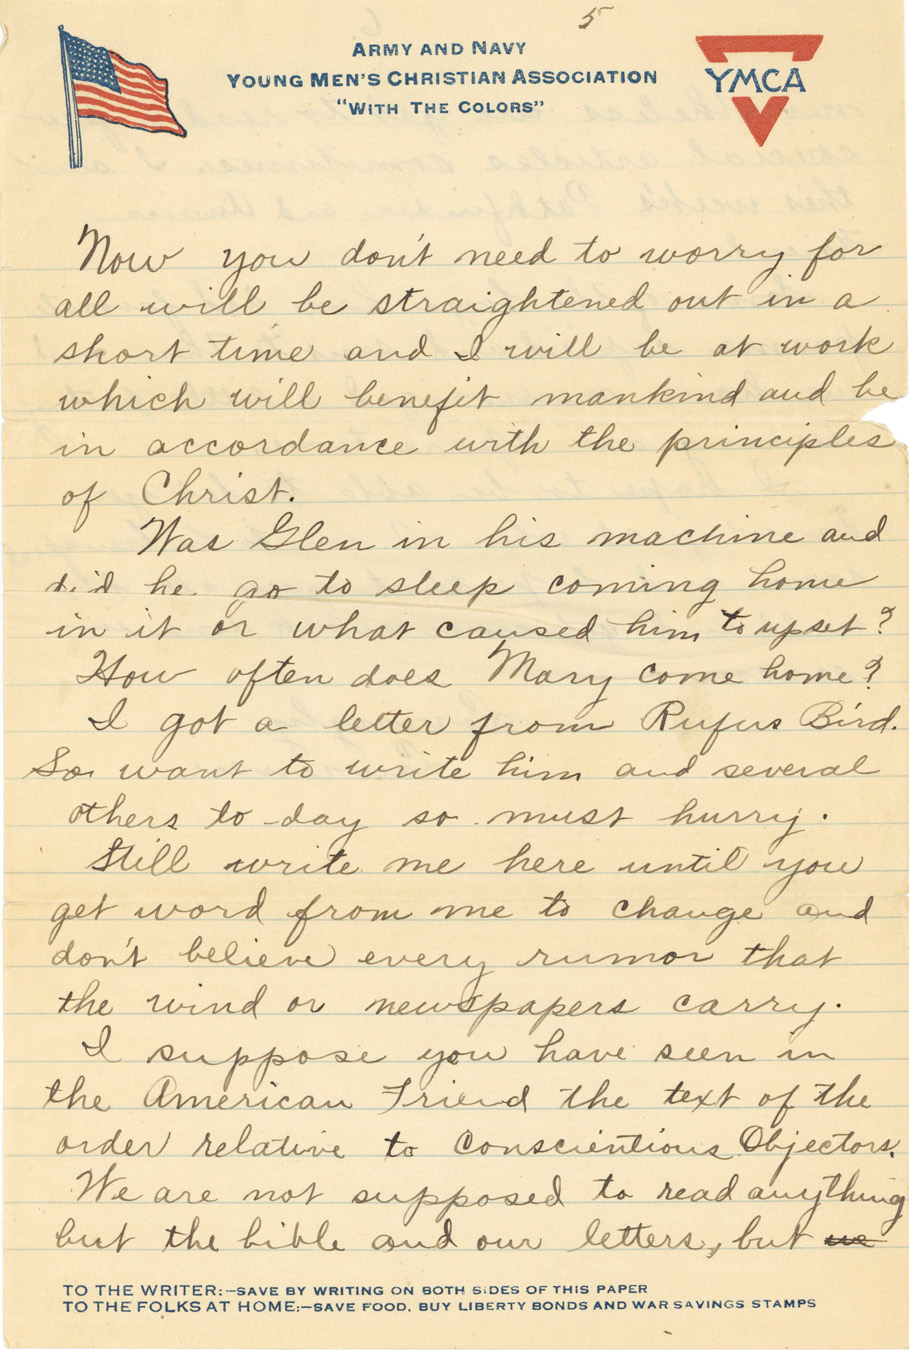 5
ARMY AND NAVY
YOUNG MEN'S CHRISTIAN ASSOCIATION
"WITH THE COLORS"
YMCA
Now you don't need to worry for
all will be straightened out in a
short time and I will be at work
which will benefit mankind and be
in accordance with the principles
of Christ.
Was Glen in his machine and
did he go to sleep coming home
in it or what caused him to upset?
How often does Mary come home?
I got a letter from Rufus Bird.
So want to write him and several
others to-day so must hurry.
Still write me here until you
get word from me to change and
don't believe every rumor that
the wind or newspapers carry.
I suppose you have seen in
the American Friend the text of the
order relative to Conscientious Objectors.
We are not supposed to read anything
but the bible and our letters, but we
TO THE WRITER:—SAVE BY WRITING ON BOTH SIDES OF THIS PAPER
TO THE FOLKS AT HOME:—SAVE FOOD, BUY LIBERTY BONDS AND WAR SAVINGS STAMPS